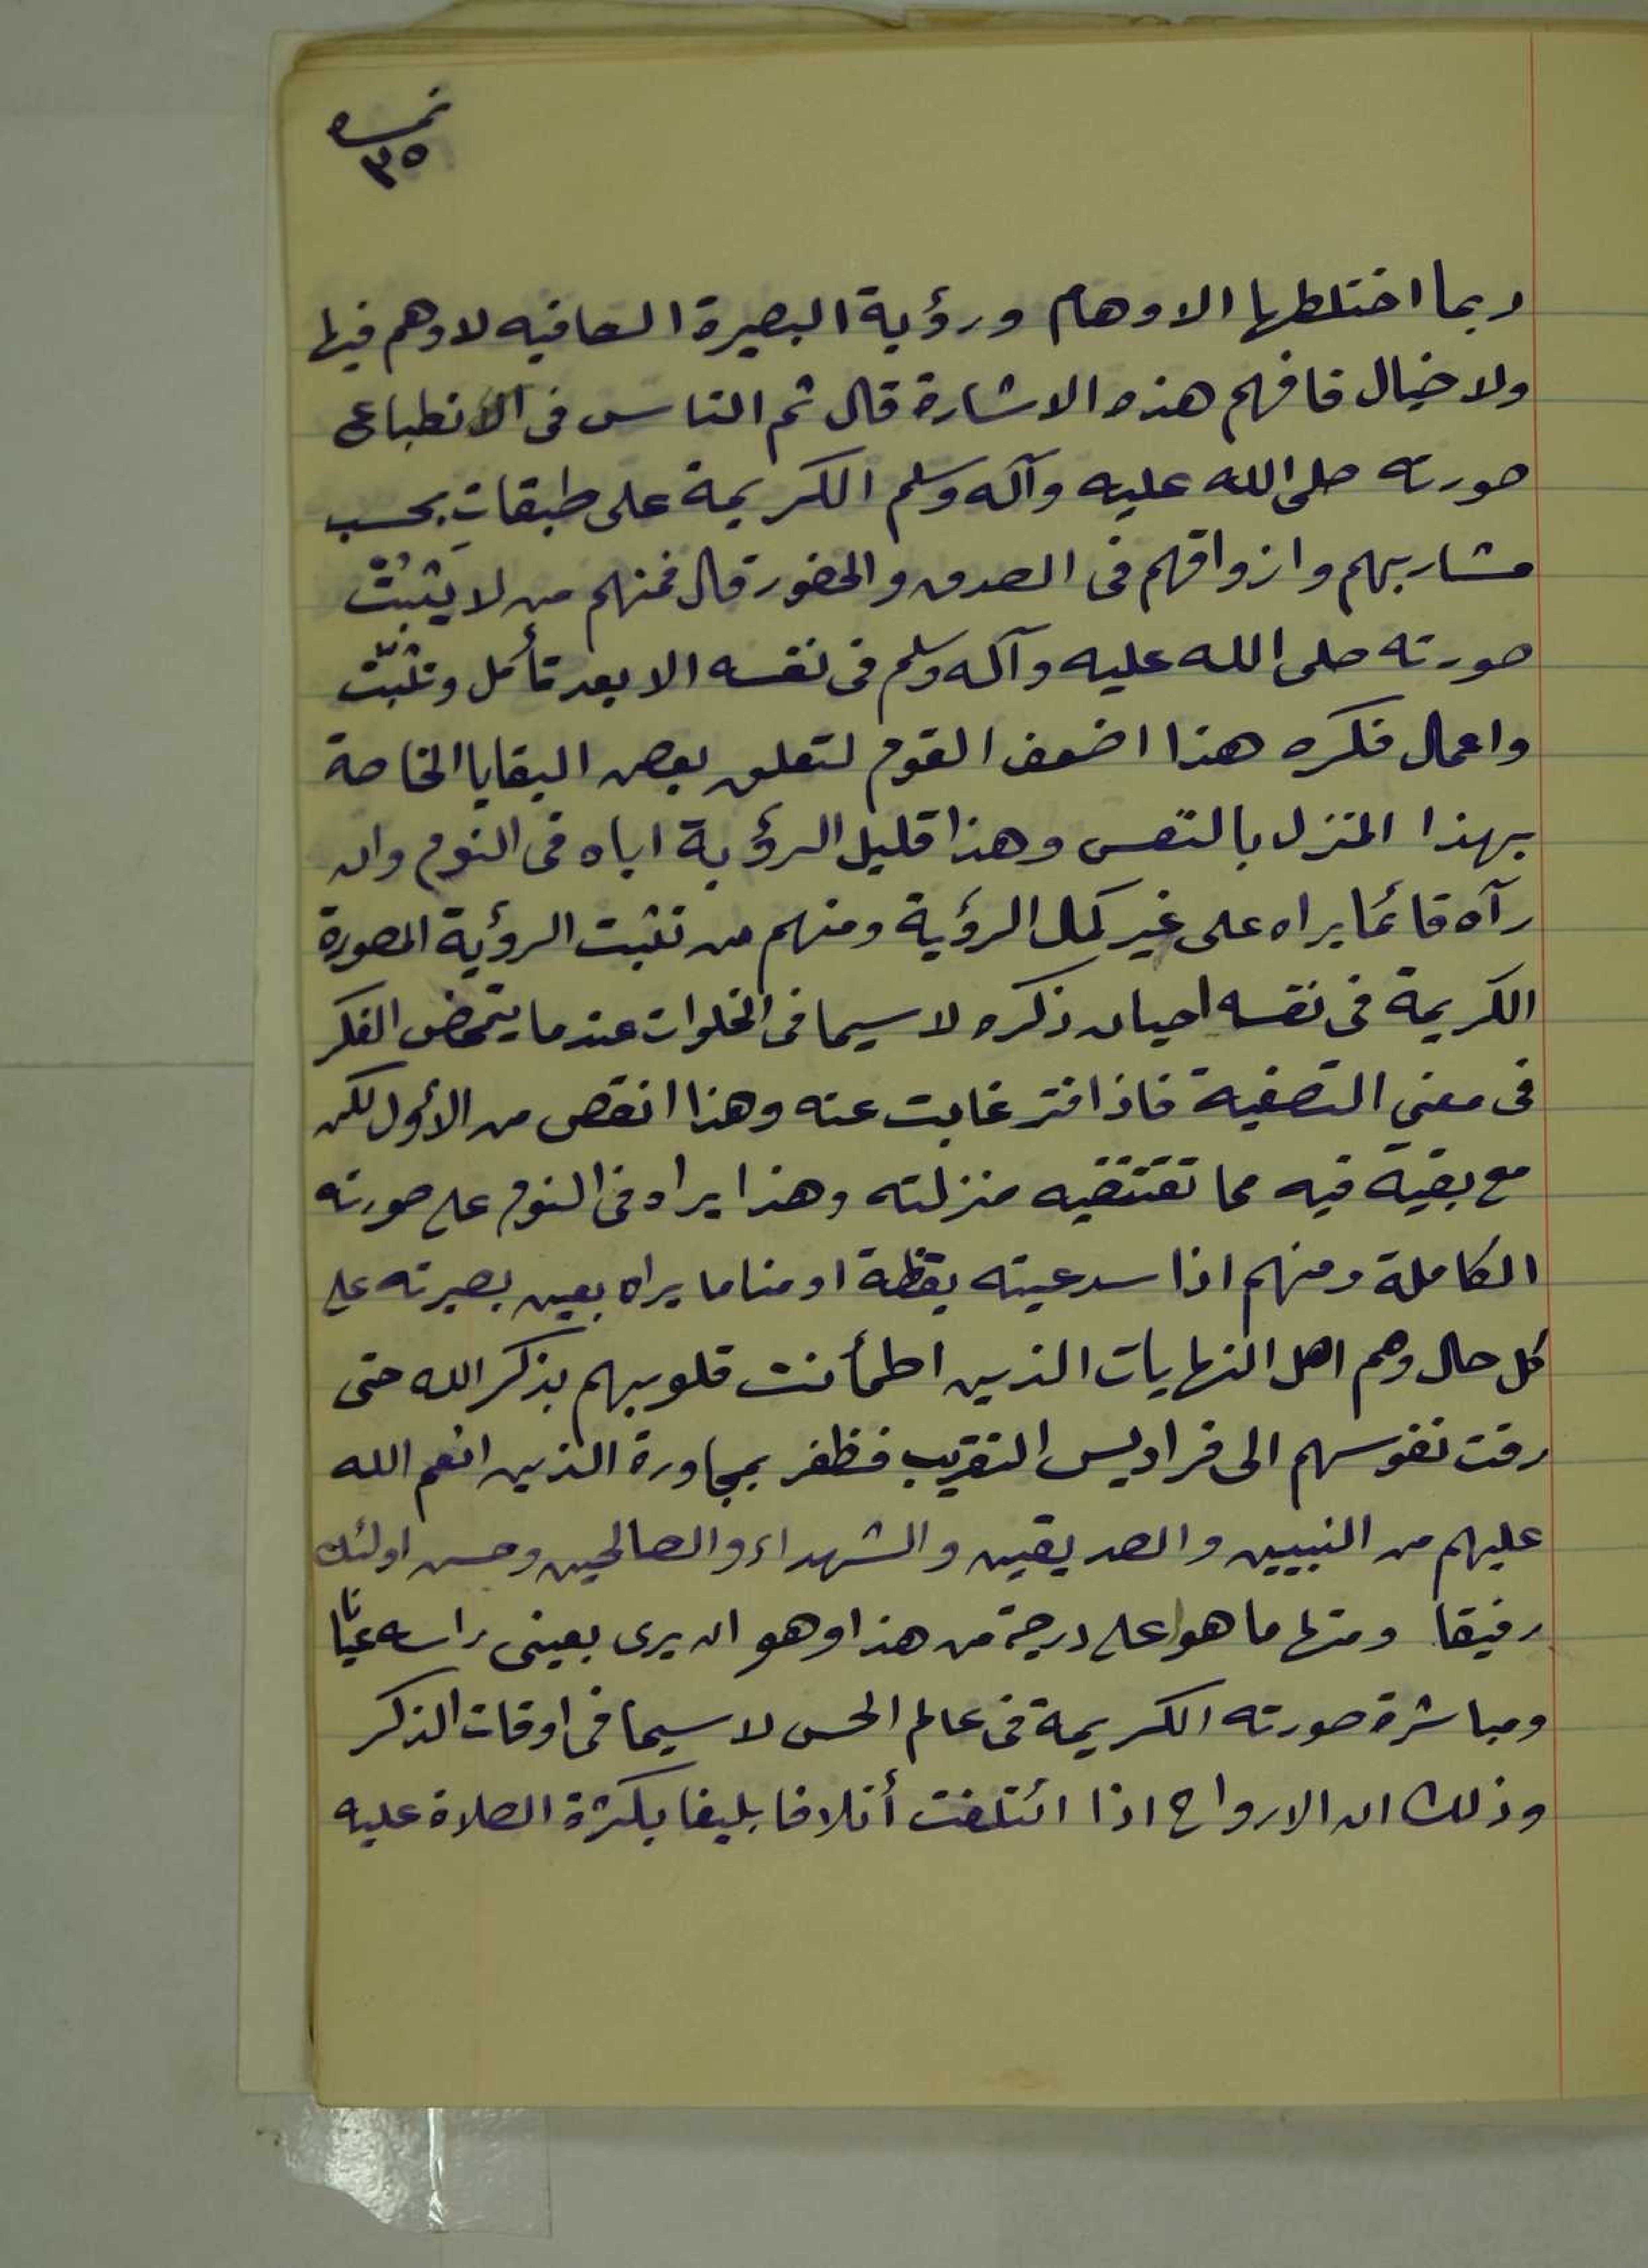 نمره
٣٥
ربما اختلطها الاوهام ورؤية البصيرة الصافيه لا وهم فيها
ولا خيال فافهم هذه الاشارة قال ثم الناس فى الانطباع
صورته صلى الله عليه وآله وسلم الكريمة على طبقاتٍ بحسب
مشاربهم وازواقهم فى الصدق والحضور قال فمنهم من لا يَثبُتْ
صورته صلى الله عليه وآله وسلم فى نفسه الا بعد تأمل وتثبّت
واعمال فكره هذا اضعف القوم لتعلق بعض البقايا الخاصة
بهذا المنزل بالنفس وهذا قليل الرؤية اياه فى النوم وان
رآه قائما يراه على غير كمال الرؤية ومنهم من تثبت الرؤية الصورة
الكريمة فى نفسه احيان ذكره لاسيما فى الخلوات عندما يتمحض الفكر
فى معنى التصفية فاذا فتر غابت عنه وهذا انقص من الأول لكن
مع بقية فيه مما تقتضيه منزلته وهذا يراه فى النوم على صورته
الكاملة ومنهم اذا سد عينه يقظة او مناما يراه بعين بصيرته على
كل حال وهم اهل النهايات الذين اطمأنت قلوبهم بذكر الله حتى
رقت نفوسهم الى فراديس التقريب فظفر بمجاورة الذين انعم الله
عليهم من النبيين والصديقين والشهداء والصالحين وحسن اولئك
رفيقا ومنها ما هو اعلى درجة من هذا وهو ان يرى بعينى راسه عيانا
ومباشرة صورته الكريمة فى عالم الحس لاسيما فى اوقات الذكر
وذلك ان الارواح اذا ائتلفت أتلافا بليغا بكثرة الصلاة عليه